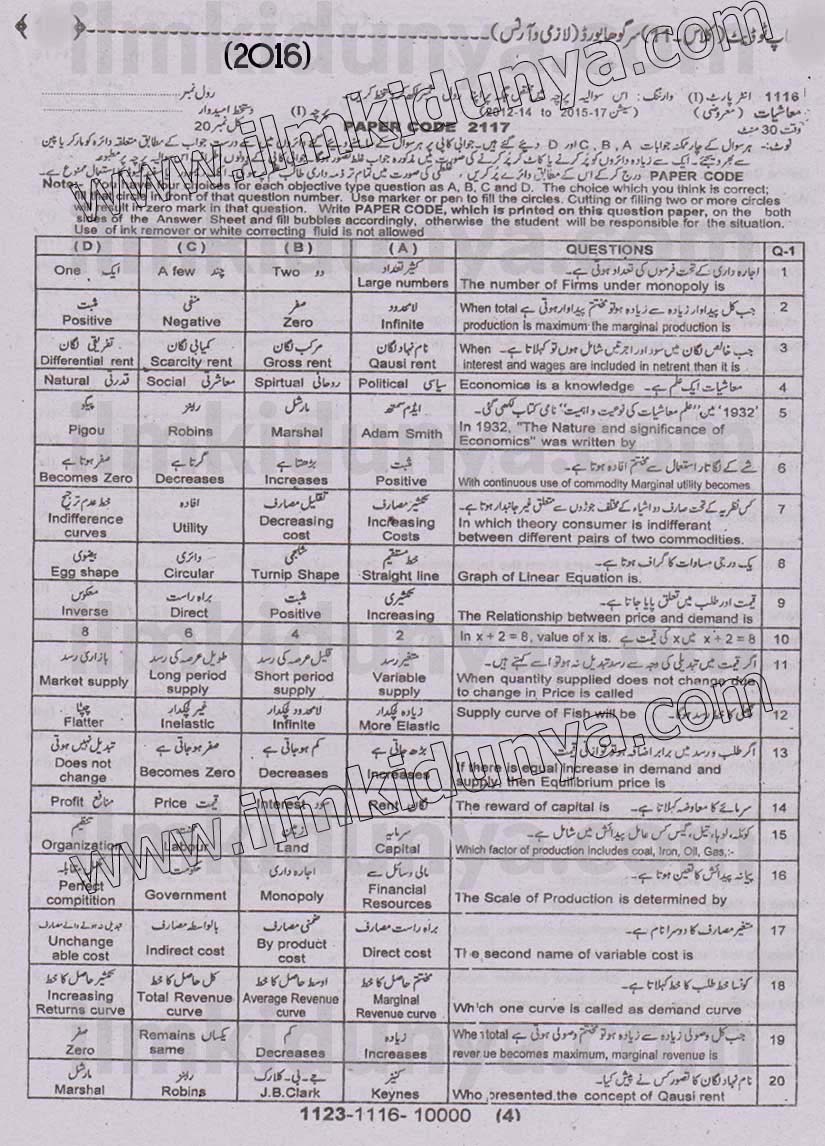 اپ ٹو ڈیٹ (کلاس ۔ 11) سرگودھا بورڈ (لازمی و آرٹس)
(2016)
1116 انٹر پارٹ (I) وارننگ: اس سوالیہ پرچہ رول نمبر
معاشیات (معروضی) (سیشن 2015-17 to 2012-14) پرچہ (I) دستخط امیدوار
وقت 30 منٹ PAPER CODE 2117 کل نمبر 20
نوٹ:- ہر سوال کے چار ممکنہ جوابات C , B , A اور D دیئے گئے ہیں۔
PAPER CODE
Note:- You have four choices for each objective type question as A, B, C and D. The choice which you think is correct;
fill that circle in front of that question number. Use marker or pen to fill the circles. Cutting or filling two or more circles
will result in zero mark in that question. Write PAPER CODE, which is printed on this question paper, on the both
sides of the Answer Sheet and fill bubbles accordingly, otherwise the student will be responsible for the situation.
Use of ink remover or white correcting fluid is not allowed
(D) (C) (B) (A) QUESTIONS Q-1
ایک One چند A few دو Two کثیر تعداد اجارہ داری کے تحت فرموں کی تعداد ہوتی ہے۔ 1
Large numbers The number of Firms under monopoly is
مثبت منفی صفر لامحدود When total جب کل پیداوار زیادہ سے زیادہ ہو تو مختتم پیداوار ہوتی ہے 2
Positive Negative Zero Infinite production is maximum the marginal production is
تفریقی لگان کمیابی لگان مرکب لگان نام نہاد لگان When جب خالص لگان میں سود اور اجرتیں شامل ہوں تو کہلاتا ہے۔ 3
Differential rent Scarcity rent Gross rent Qausi rent interest and wages are included in netrent then it is
قدرتی Natural معاشرتی Social روحانی Spirtual سیاسی Political Economics is a knowledge معاشیات ایک علم ہے۔ 4
پیگو رابنز مارشل ایڈم سمتھ '1932' میں "علم معاشیات کی نوعیت و اہمیت" نامی کتاب لکھی گئی۔ 5
Pigou Robins Marshal Adam Smith In 1932, "The Nature and significance of
Economics" was written by
صفر ہوتا ہے گرتا ہے بڑھتا ہے مثبت شے کے لگاتار استعمال سے مختتم افادہ ہوتا ہے۔ 6
Becomes Zero Decreases Increases Positive With continuous use of commodity Marginal utility becomes
خط عدم ترجیح افادہ تقلیل مصارف تکثیر مصارف کس نظریہ کے تحت صارف دو اشیاء کے مختلف جوڑوں سے متعلق غیر جانبدار ہوتا ہے۔ 7
Indifference curves Utility Decreasing cost Increasing Costs In which theory consumer is indifferant
between different pairs of two commodities.
بیضوی دائری شلجمی خط مستقیم یک درجی مساوات کا گراف ہوتا ہے۔ 8
Egg shape Circular Turnip Shape Straight line Graph of Linear Equation is.
معکوس براہ راست مثبت تکثیری قیمت اور طلب میں تعلق پایا جاتا ہے۔ 9
Inverse Direct Positive Increasing The Relationship between price and demand is
8 6 4 2 In x + 2 = 8, value of x is. x + 2 = 8 میں x کی قیمت ہے 10
بازاری رسد طویل عرصہ کی رسد قلیل عرصہ کی رسد متغیر رسد اگر قیمت میں تبدیلی کی وجہ سے رسد تبدیل نہ ہو تو اسے کہتے ہیں۔ 11
Market supply Long period supply Short period supply Variable supply When quantity supplied does not change due
to change in Price is called
چپٹا غیر لچکدار لامحدود لچکدار زیادہ لچکدار Supply curve of Fish will be مچھلی کا خط رسد ہوگا۔ 12
Flatter Inelastic Infinite More Elastic
تبدیل نہیں ہوتی صفر ہو جاتی ہے کم ہو جاتی ہے بڑھ جاتی ہے اگر طلب و رسد میں برابر اضافہ ہو تو توازنی قیمت 13
Does not change Becomes Zero Decreases Increases If there is equal increase in demand and
supply, then Equilibrium price is
منافع Profit قیمت Price سود Interest لگان Rent The reward of capital is سرمائے کا معاوضہ کہلاتا ہے۔ 14
تنظیم محنت زمین سرمایہ کوئلہ، لوہا، تیل، گیس کس عامل پیدائش میں شامل ہے۔ 15
Organization Labour Land Capital Which factor of production includes coal, Iron, Oil, Gas,:-
مکمل مقابلہ حکومت اجارہ داری مالی وسائل سے پیمانہ پیدائش کا تعین ہوتا ہے۔ 16
Perfect compitition Government Monopoly Financial Resources The Scale of Production is determined by
تبدیل نہ ہونے والے مصارف بالواسطہ مصارف ضمنی مصارف براہ راست مصارف متغیر مصارف کا دوسرا نام ہے۔ 17
Unchange able cost Indirect cost By product cost Direct cost The second name of variable cost is
تکثیر حاصل کا خط کل حاصل کا خط اوسط حاصل کا خط مختتم حاصل کا خط کونسا خط طلب کا خط کہلاتا ہے۔ 18
Increasing Returns curve Total Revenue curve Average Revenue curve Marginal Revenue curve Which one curve is called as demand curve
صفر یکساں Remains کم زیادہ When total جب کل وصولی زیادہ سے زیادہ ہو تو مختتم وصولی ہوتی ہے 19
Zero same Decreases Increases revenue becomes maximum, marginal revenue is
مارشل رابنز جے۔بی۔کلارک کینز نام نہاد لگان کا تصور کس نے پیش کیا۔ 20
Marshal Robins J.B.Clark Keynes Who presented the concept of Qausi rent
1123-1116- 10000 (4)
www.ilmkidunya.com
www.ilmkidunya.com